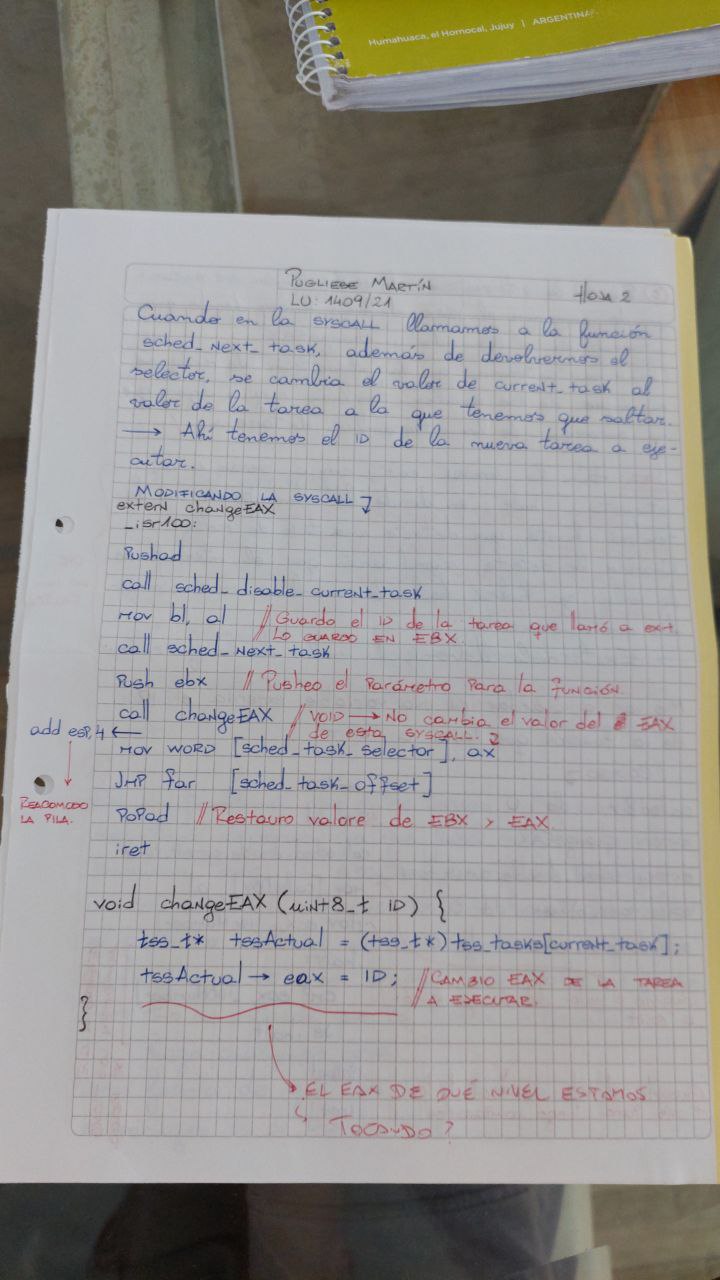 Humahuaca, el Hornocal, Jujuy | ARGENTINA
PUGLIESE MARTÍN
LU: 1409/21
HOJA 2
Cuando en la SYSCALL llamamos a la función
sched_next_task, además de devolvernos el
selector, se cambia el valor de current_task al
valor de la tarea a la que tenemos que saltar.
→ Ahí tenemos el ID de la nueva tarea a eje-
cutar.
MODIFICANDO LA SYSCALL
extern changeEAX
_isr100:
Pushad
call sched_disable_current_task
MOV bl, al // Guardo el ID de la tarea que llamó a exit.
LO GUARDO EN EBX.
call sched_next_task
Push ebx // Pusheo el parámetro para la función
call changeEAX // VOID → No cambia el valor del EAX
de esta SYSCALL.
add esp,4 ←
MOV WORD [sched_task_selector], ax
JMP far [sched_task_offset]
REACOMODO
LA PILA.
PoPad // Restauro valore de EBX y EAX.
iret
void changeEAX (uint8_t ID) {
tss_t* tssActual = (tss_t*) tss_tasks[current_task];
tssActual → eax = ID; // CAMBIO EAX DE LA TAREA
A EJECUTAR.
}
EL EAX DE QUÉ NIVEL ESTAMOS
TOCANDO?